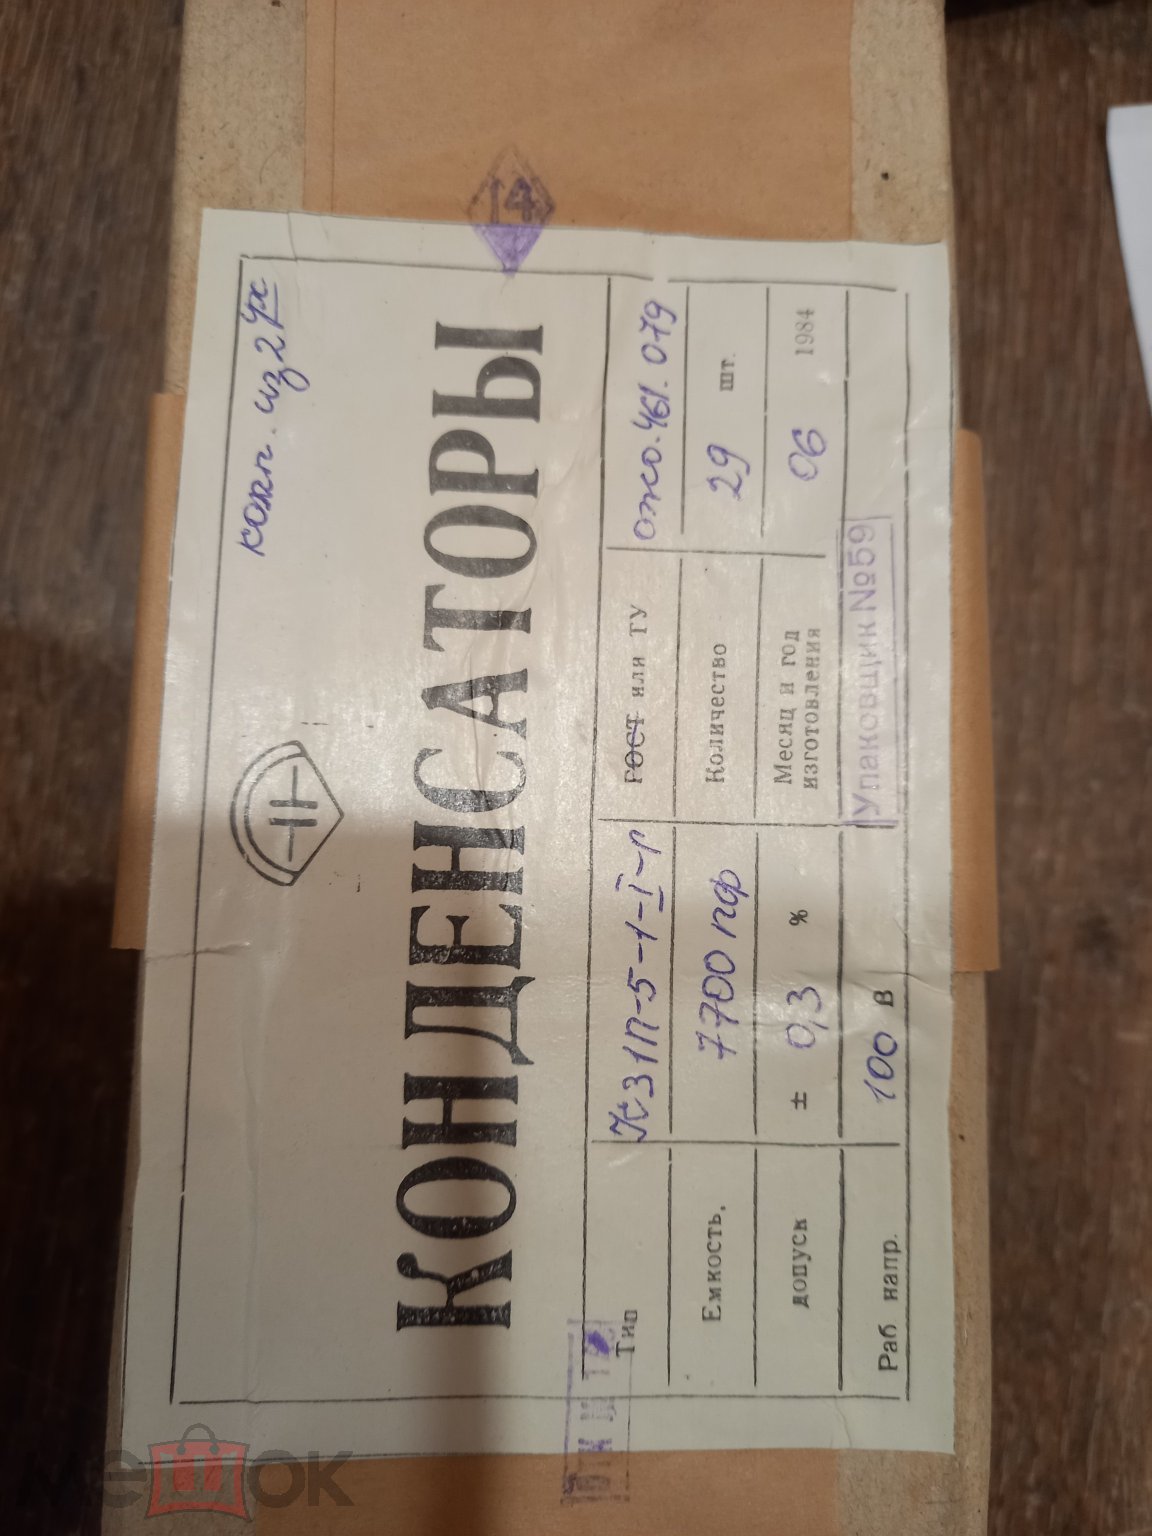 комп. из 2 ух
КОНДЕНСАТОРЫ
Тип К31П-5-1-I-г ГОСТ или ТУ ОЖО.461.079
Емкость, 7700 пф Количество 29 шт.
допуск ± 0,3 % Месяц и год изготовления 06 1984
Раб напр. 100 В Упаковщик №59
14
мешок